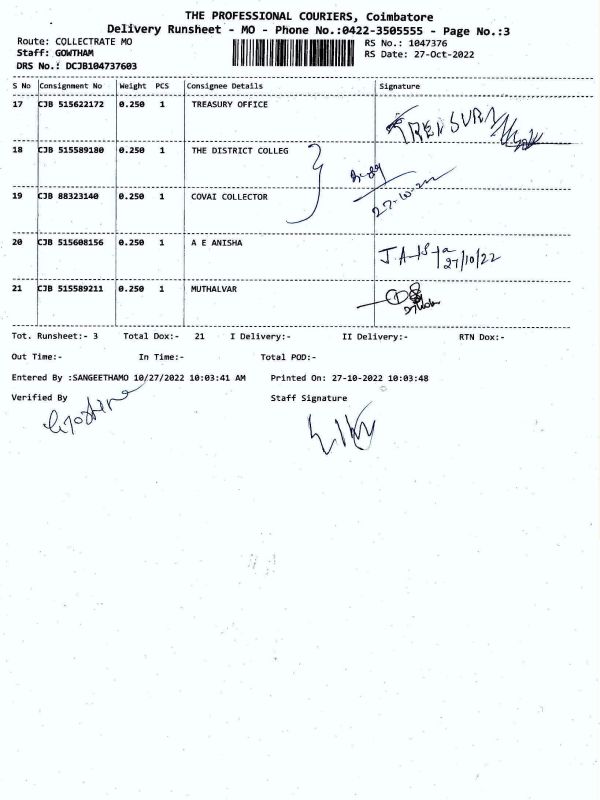 THE PROFESSIONAL COURIERS, Coimbatore
Delivery Runsheet - MO - Phone No.:0422-3505555 - Page No.:3
Route: COLLECTRATE MO RS No.: 1047376
Staff: GOWTHAM RS Date: 27-Oct-2022
DRS No.: DCJB104737603
S No Consignment No Weight PCS Consignee Details Signature
17 CJB 515622172 0.250 1 TREASURY OFFICE
18 CJB 515589180 0.250 1 THE DISTRICT COLLEG
19 CJB 88323140 0.250 1 COVAI COLLECTOR
27-10-22
20 CJB 515608156 0.250 1 A E ANISHA
27/10/22
21 CJB 515589211 0.250 1 MUTHALVAR
Tot. Runsheet:- 3 Total Dox:- 21 I Delivery:- II Delivery:- RTN Dox:-
Out Time:- In Time:- Total POD:-
Entered By :SANGEETHAMO 10/27/2022 10:03:41 AM Printed On: 27-10-2022 10:03:48
Verified By Staff Signature